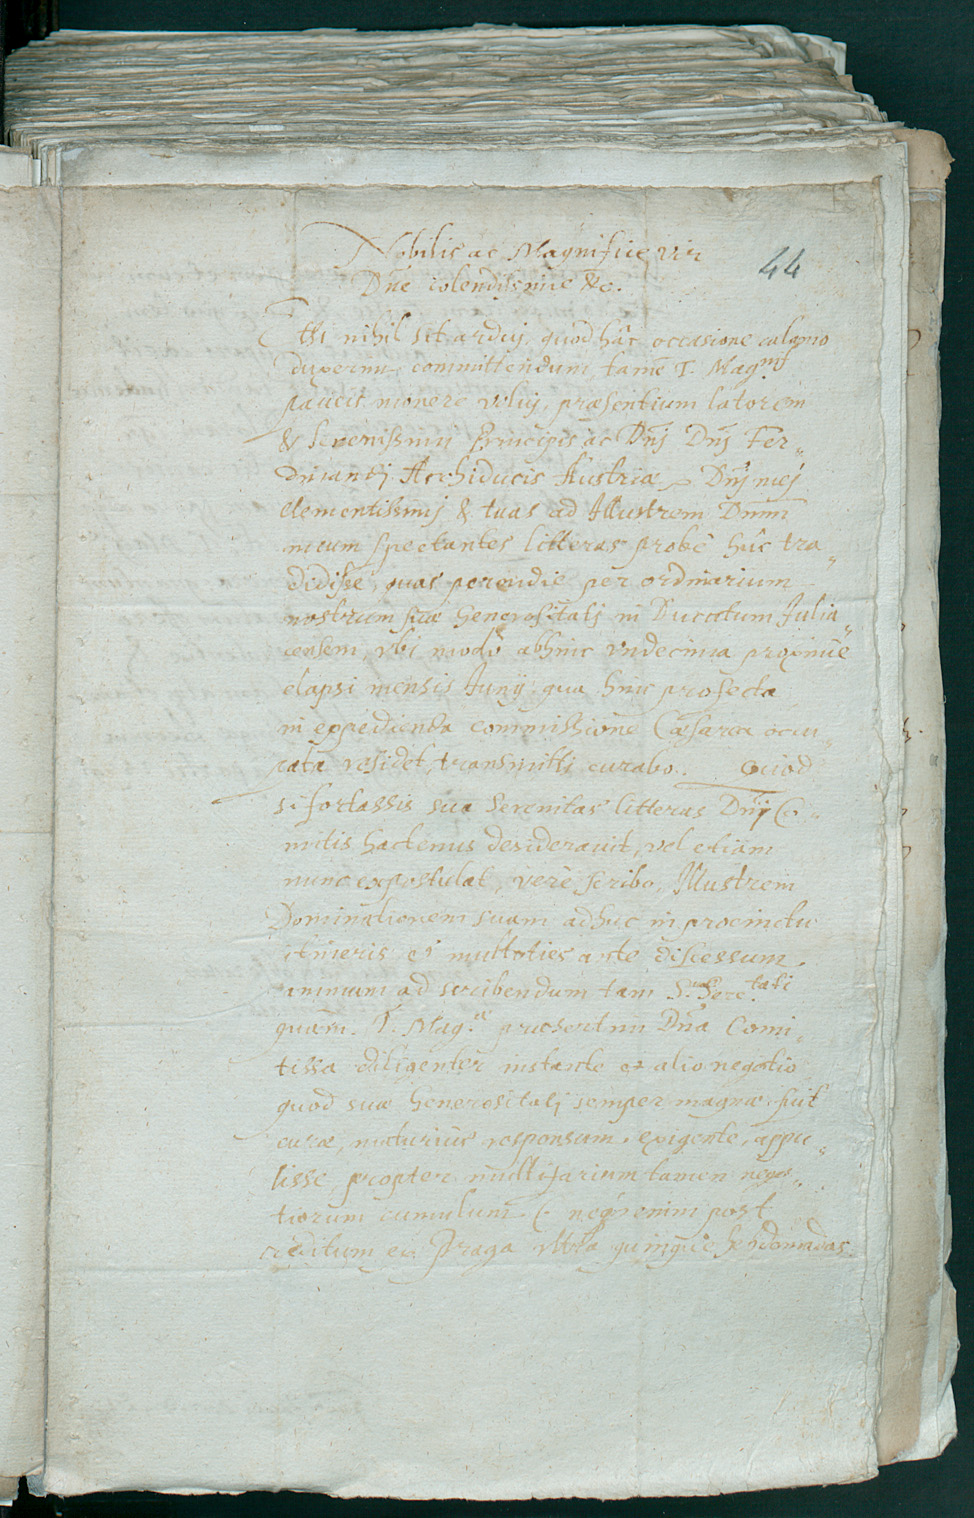 Nobilis ac Magnifice vir
44
Dne colendissime &c.
Etsi nihil sit ardui, quod hâc occasione calamo
duxerim committendum tamē T. Mag.
paucis monere volui, præsentium latorem
& Serenissimi Principis ac Dnj Dnj Fer„
dinandj Archiducis Austriæ Dnj mej
clementissimj & tuas ad Illustrem Dnm
meum spectantes litteras probè hûc tra„
didisse, quas perendie per ordinarium
nostrum suæ Generositatj in Ducatum Julia„
censem, vbi modò abhinc vndecima proximè
elapsi mensis Junij qua hinc profecta
in expedienda commissione Cæsarea occu„
pata residet, transmitti curabo. Quod
si fortassis sua Serenitas litteras Dnj Co„
mitis hactenus desiderauit, vel etiam
nunc expostulat, verè scribo, Illustrem
Dominationem suam adhuc in procinctu
itineris et multoties ante discessum
animum ad scribendum tam S. Sere.tati
quam T. Mag. præsertim Dna Comi„
tissa diligenter instante et alio negotio
quod suæ Generositatj semper magnæ fuit
curæ, maturius responsum exigente, appu„
lisse, propter multifarium tamen nego„
tiorum cumulum (neq enim post
reditum ex Praga vltra quinque hebdomadas